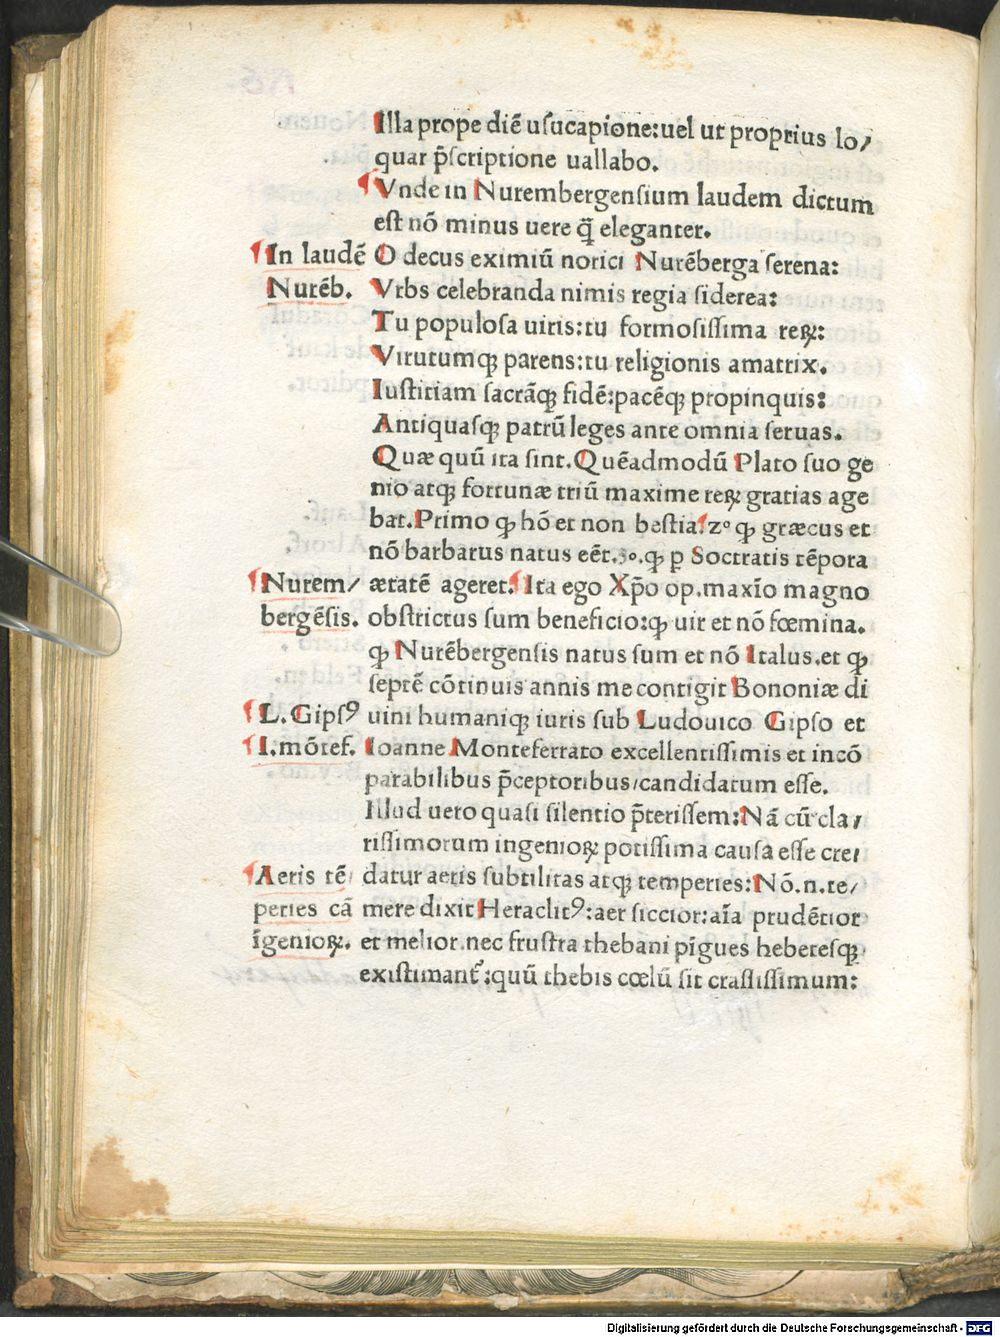 Illa prope diē usucapione:uel ut proprius lo/
quar p̄scriptione uallabo.
¶ Vnde in Nurembergensium laudem dictum
est nō minus uere q̄ eleganter.
¶ In laudē
Nurēb.
O decus eximiū norici Nurēberga serena:
Vrbs celebranda nimis regia siderea:
Tu populosa uiris:tu formosissima reꝝ:
Virtutumqꝫ parens:tu religionis amatrix.
Iustitiam sacrāqꝫ fidē:pacēqꝫ propinquis:
Antiquasqꝫ patrū leges ante omnia seruas.
Quæ quū ita sint.Quēadmodū Plato suo ge
nio atqꝫ fortunæ triū maxime reꝝ gratias age
bat.Primo ꝙ hō et non bestia.¶2º ꝙ græcus et
nō barbarus natus eēt.3º.ꝙ p Socratis tēpora
¶ Nurem/
bergēsis.
ætatē ageret.¶ Ita ego Xp̄o op.maxīo magno
obstrictus sum beneficio:ꝙ uir et nō fœmina.
ꝙ Nurēbergensis natus sum et nō Italus.et ꝙ
septē cōtinuis annis me contigit Bononiæ di
¶ L.Gipsꝰ
¶ I.mōtef.
uini humaniqꝫ iuris sub Ludouico Gipso et
Ioanne Monteferrato excellentissimis et incō
parabilibus p̄ceptoribus/candidatum esse.
Illud uero quasi silentio p̄terissem:Nā cū cla/
rissimorum ingenioꝝ potissima causa esse cre/
¶ Aeris tē/
peries cā
īgenioꝝ.
datur aeris subtilitas atqꝫ temperies:Nō.n.te/
mere dixit Heraclitꝰ:aer siccior:aīa prudētior
et melior.nec frustra thebani pīgues hebetesqꝫ
existimant᷑:quū thebis cœlū sit crassissimum:
Digitalisierung gefördert durch die Deutsche Forschungsgemeinschaft - DFG